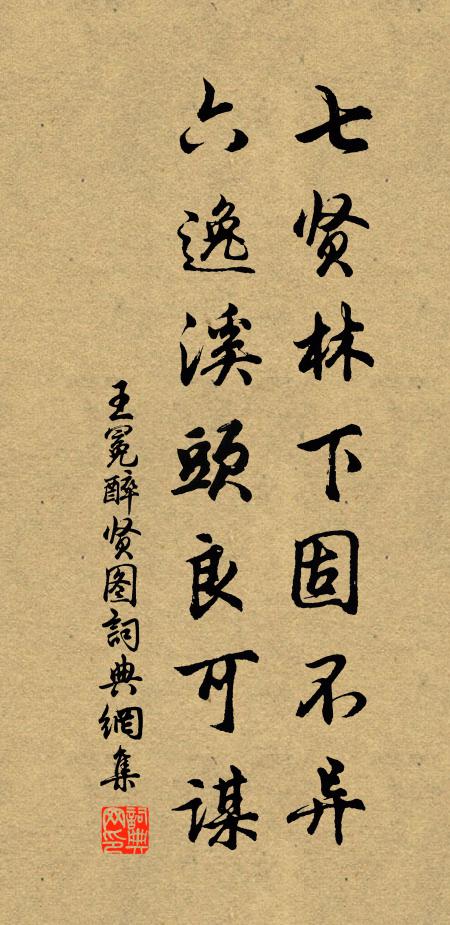 七贤林下固不异
六逸溪頭良可谋
王冕醉贤图詞典網集
詞典
网印